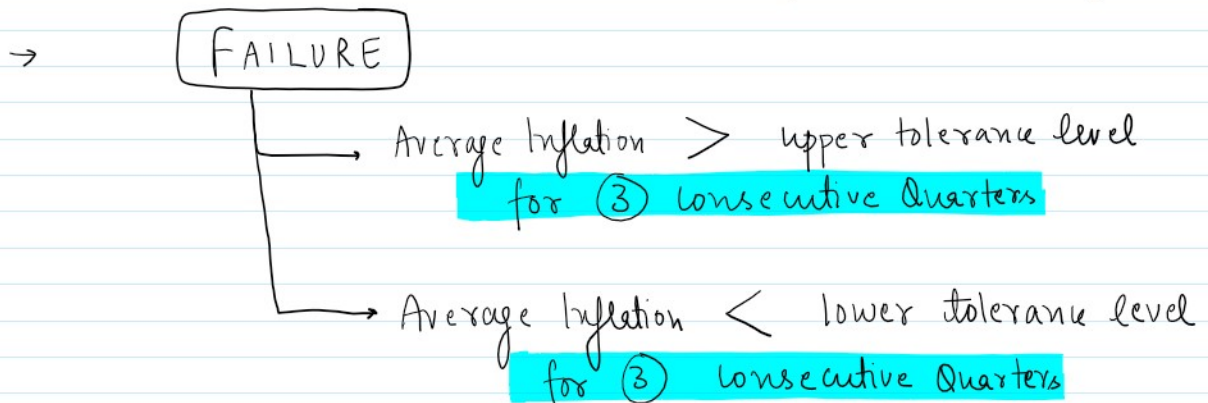 → FAILURE
Average Inflation > upper tolerance level
for ③ consecutive Quarters
Average Inflation < lower tolerance level
for ③ consecutive Quarters